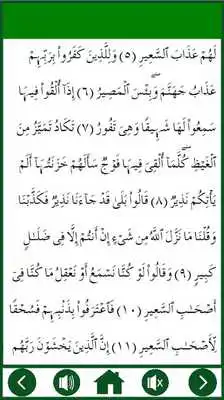 لَهُمْ عَذَابَ ٱلسَّعِيرِ (٥) وَلِلَّذِينَ كَفَرُوا۟ بِرَبِّهِمْ
عَذَابُ جَهَنَّمَ ۖ وَبِئْسَ ٱلْمَصِيرُ (٦) إِذَآ أُلْقُوا۟ فِيهَا
سَمِعُوا۟ لَهَا شَهِيقًا وَهِىَ تَفُورُ (٧) تَكَادُ تَمَيَّزُ مِنَ
ٱلْغَيْظِ ۖ كُلَّمَآ أُلْقِىَ فِيهَا فَوْجٌ سَأَلَهُمْ خَزَنَتُهَآ أَلَمْ
يَأْتِكُمْ نَذِيرٌ (٨) قَالُوا۟ بَلَىٰ قَدْ جَآءَنَا نَذِيرٌ فَكَذَّبْنَا
وَقُلْنَا مَا نَزَّلَ ٱللَّهُ مِن شَىْءٍ إِنْ أَنتُمْ إِلَّا فِى ضَلَـٰلٍ
كَبِيرٍ (٩) وَقَالُوا۟ لَوْ كُنَّا نَسْمَعُ أَوْ نَعْقِلُ مَا كُنَّا فِىٓ
أَصْحَـٰبِ ٱلسَّعِيرِ (١٠) فَٱعْتَرَفُوا۟ بِذَنۢبِهِمْ فَسُحْقًا
لِّأَصْحَـٰبِ ٱلسَّعِيرِ (١١) إِنَّ ٱلَّذِينَ يَخْشَوْنَ رَبَّهُم